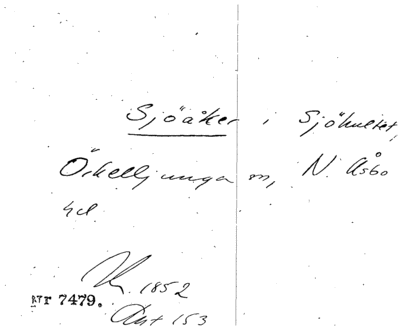 Sjöåker i Sjöhultet,
Örkelljunga sn, N. Åsbo
hd
1852
Nr 7479.
Ant 153